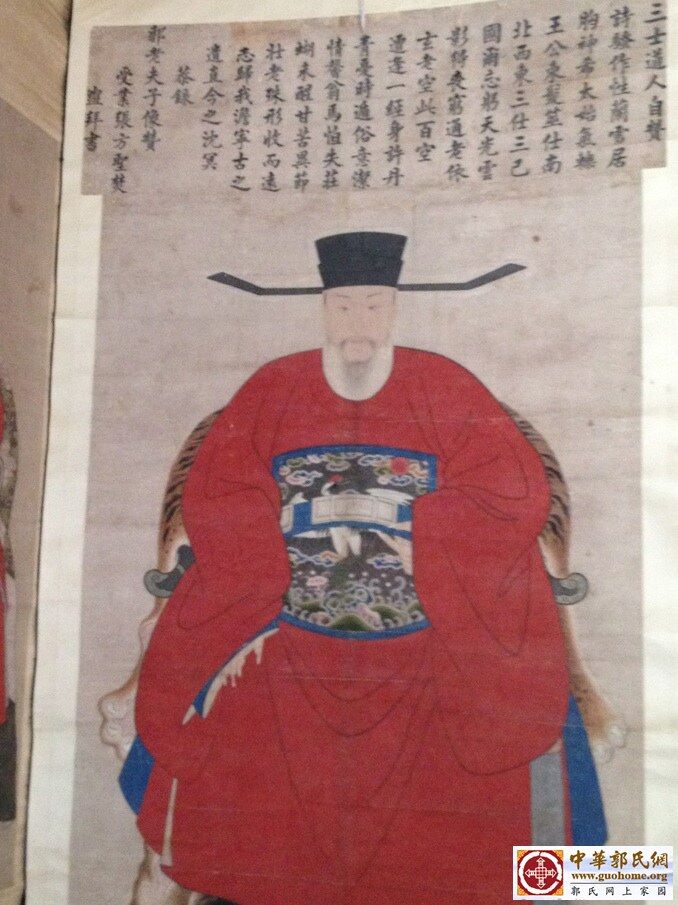 三士道人自贊
詩發作性蘭雪居
胸神希太始氣
王公束髮筮仕南
北西東三仕三已
國爾忘躬天光雲
影得喪窮通老依
玄老空此百空
遭逢一經身許丹
青憂時遁俗意潔
情聲翁馬恒失莊
蝴未醒甘苦異節
壯老殊形收而遠
忘歸我澹寧古之
遺直今之沈冥
恭錄
郭老夫子像贊
受業張方聖焚
盥拜書
中華郭氏網
www.guohome.org
郭氏网上家园